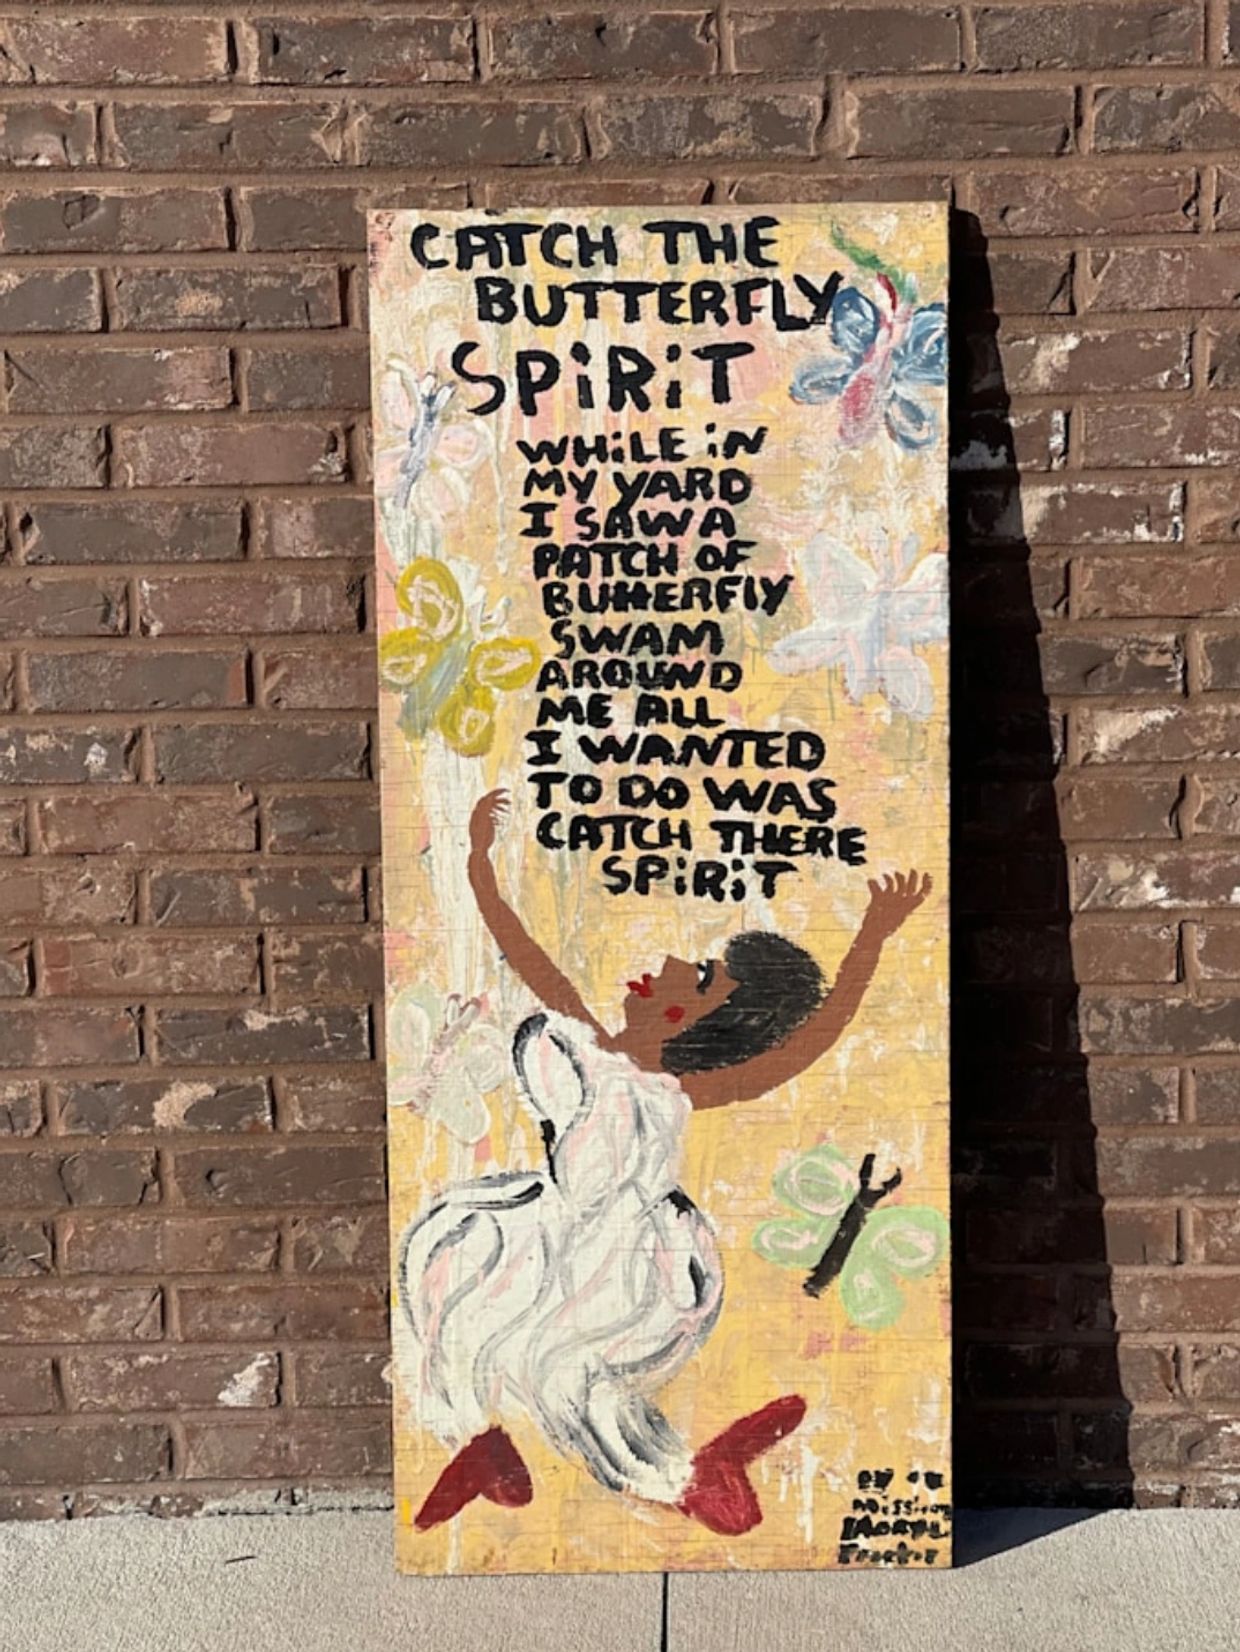 CATCH THE
BUTTERFLY
SPiRiT
WHiLE iN
MY YARD
I SAW A
PATCH OF
BUttERFlY
SWAM
AROUND
ME ALL
I WANTED
TO DO WAS
CATCH THERE
SPiRiT
Mission